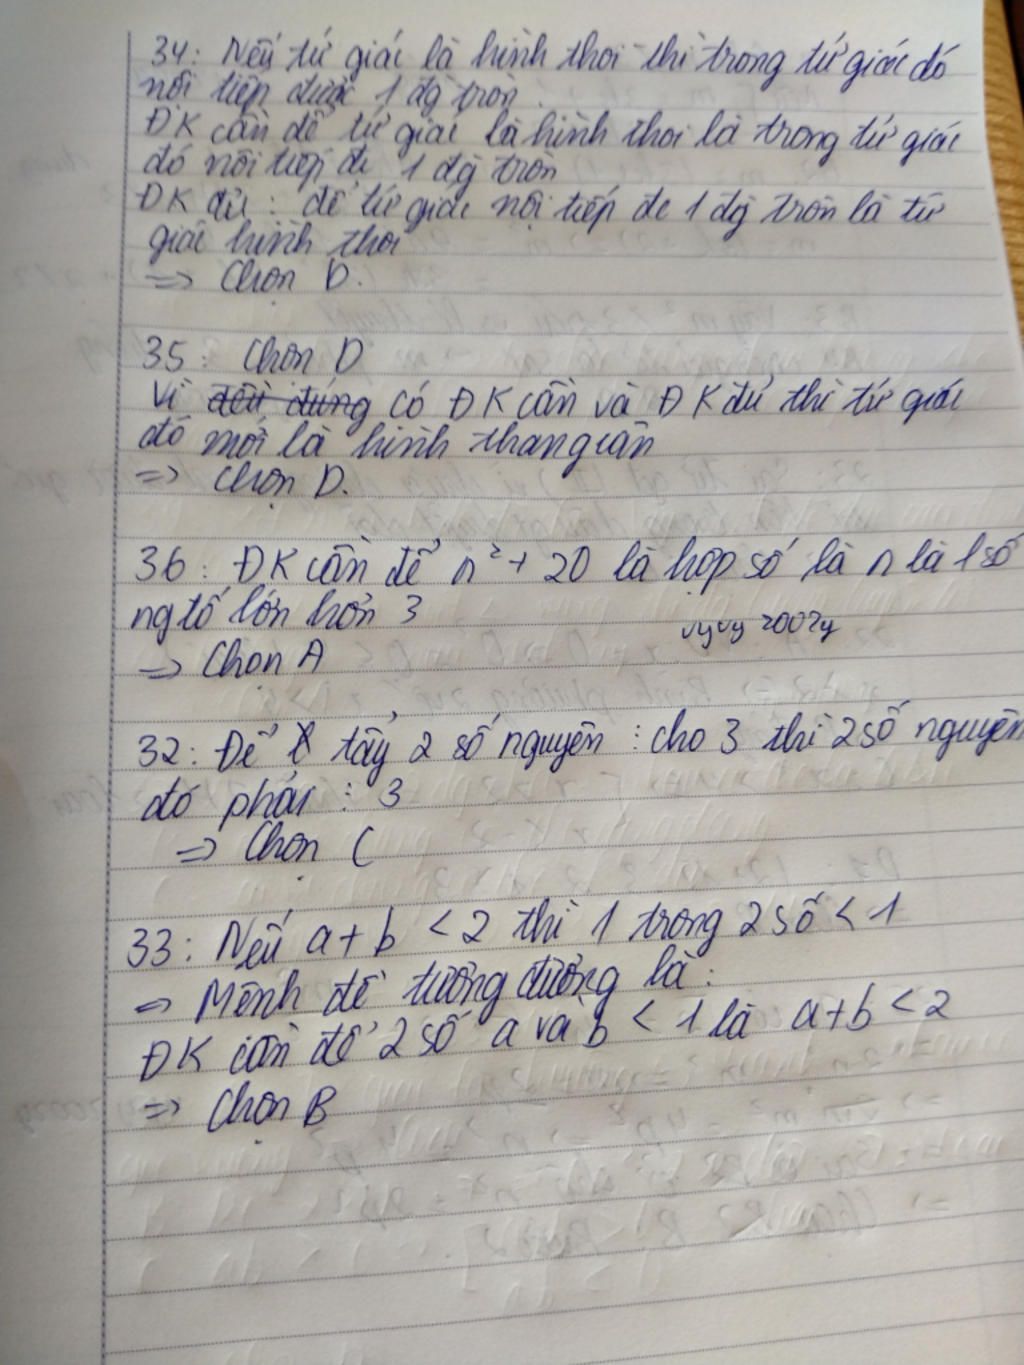 34: Nếu tứ giác là hình thoi thì trong tứ giác đó
nội tiếp được 1 đg tròn.
ĐK cần để tứ giác là hình thoi là trong tứ giác
đó nội tiếp đc 1 đg tròn
ĐK đủ: để tứ giác nội tiếp đc 1 đg tròn là tứ
giác hình thoi
=> Chọn D.
35: Chọn D
Vì đều đúng có ĐK cần và ĐK đủ thì tứ giác
đó mới là hình thang cân
=> Chọn D.
36: ĐK cần để n² + 20 là hợp số là n là 1 số
ng tố lớn hơn 3
vyvy2002y
=> Chọn A
32: Để tấy 2 số nguyên ⋮ cho 3 thì 2 số nguyên
đó phải ⋮ 3
=> Chọn C
33: Nếu a+b < 2 thì 1 trong 2 số < 1
=> Mệnh đề tương đương là:
ĐK cần để 2 số a và b < 1 là a+b < 2
=> Chọn B